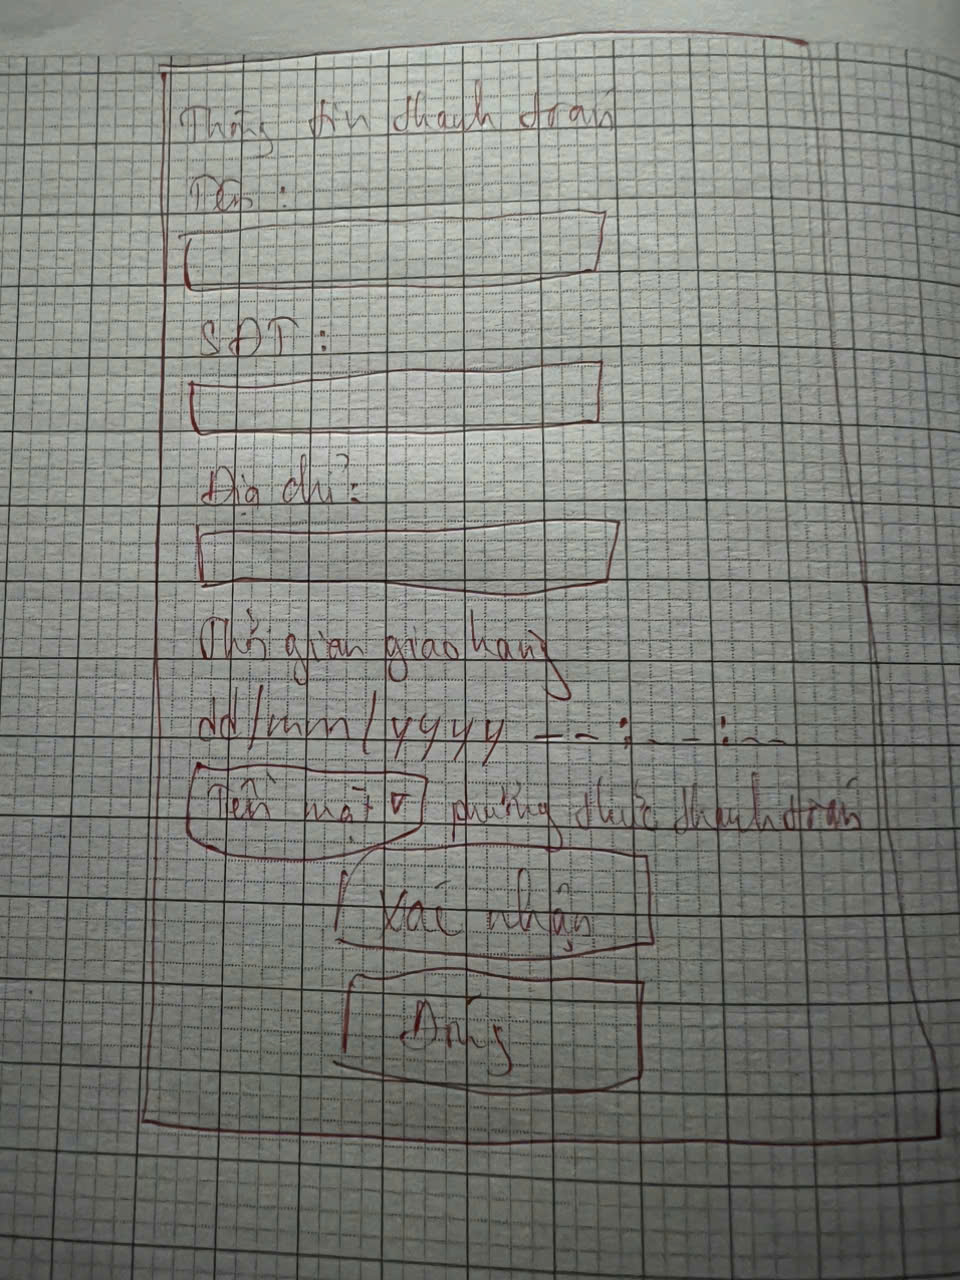 Thông tin thanh toán
Tên :
SĐT :
Địa chỉ :
Thời gian giao hàng
dd/mm/yyyy --:--:--
Tiền mặt ▽ phương thức thanh toán
Xác nhận
Đóng